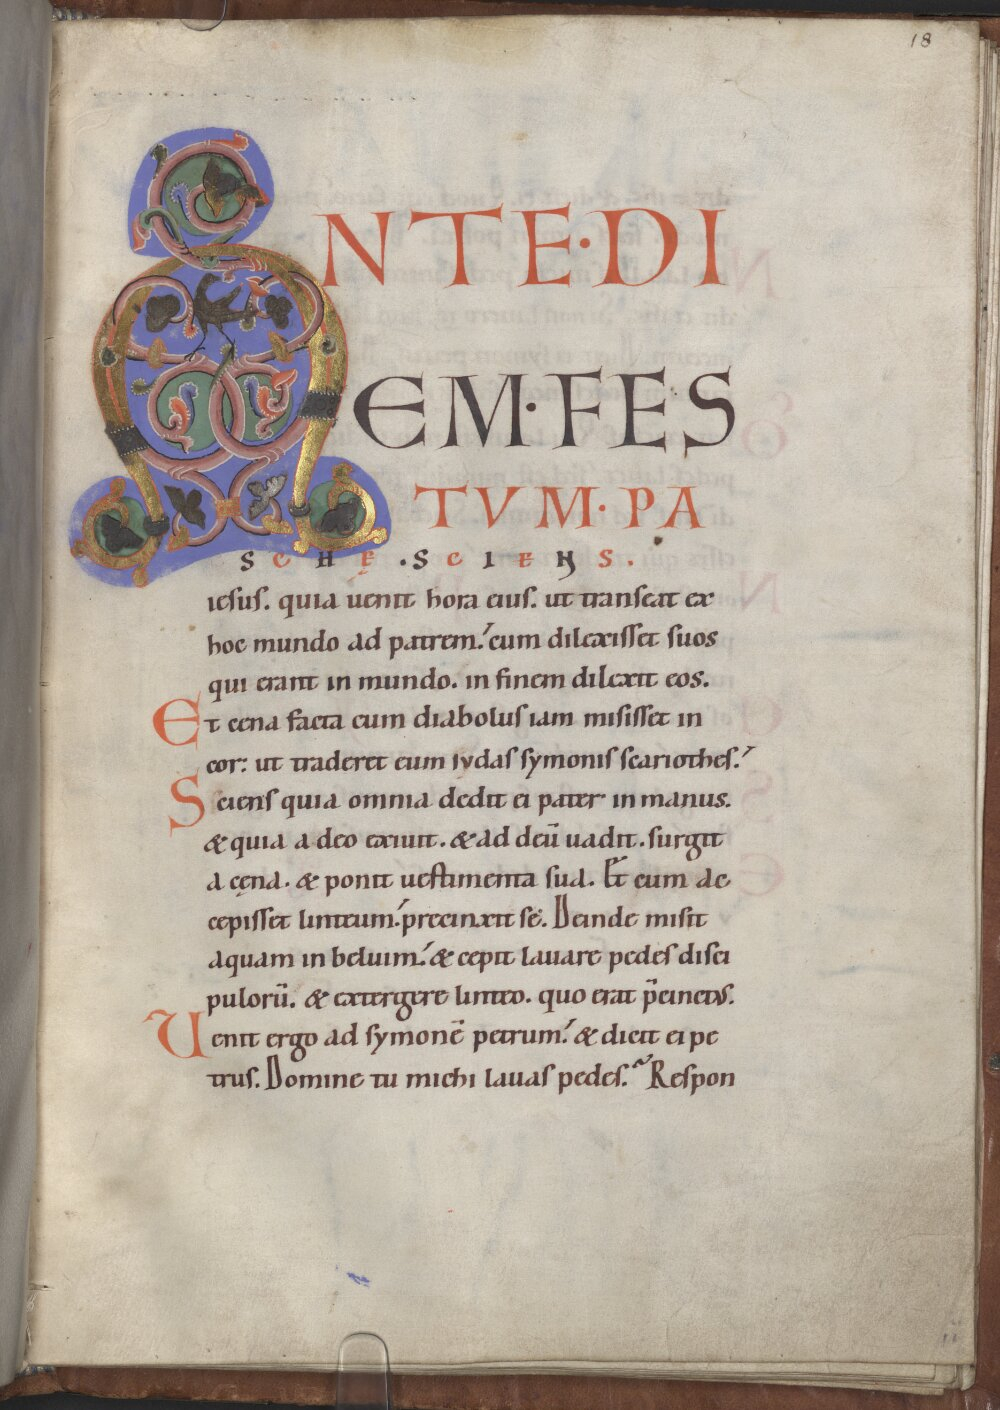 18
ANTE·DI
EM·FES
TVM·PA
SCHĘ·SCIENS.
iesus. quia uenit hora eius. ut transeat ex
hoc mundo ad patrem.' cum dilexisset suos
qui erant in mundo. in finem dilexit eos.
Et cena facta cum diabolus iam misisset in
cor: ut traderet eum iydas symonis scariothes.'
Sciens quia omnia dedit ei pater in manus.
& quia a deo exiuit. & ad deū uadit. surgit
a cęna. & ponit uestimenta sua. Et cum ac
cepisset linteum.' precinxit se. Deinde misit
aquam in beluim.' & cepit lauare pedes disci
pulorū. & extergere linteo. quo erat p̄cinctus.
Uenit ergo ad symonē petrum.' & dicit ei pe
trus. Domine tu michi lauas pedes.' Respon